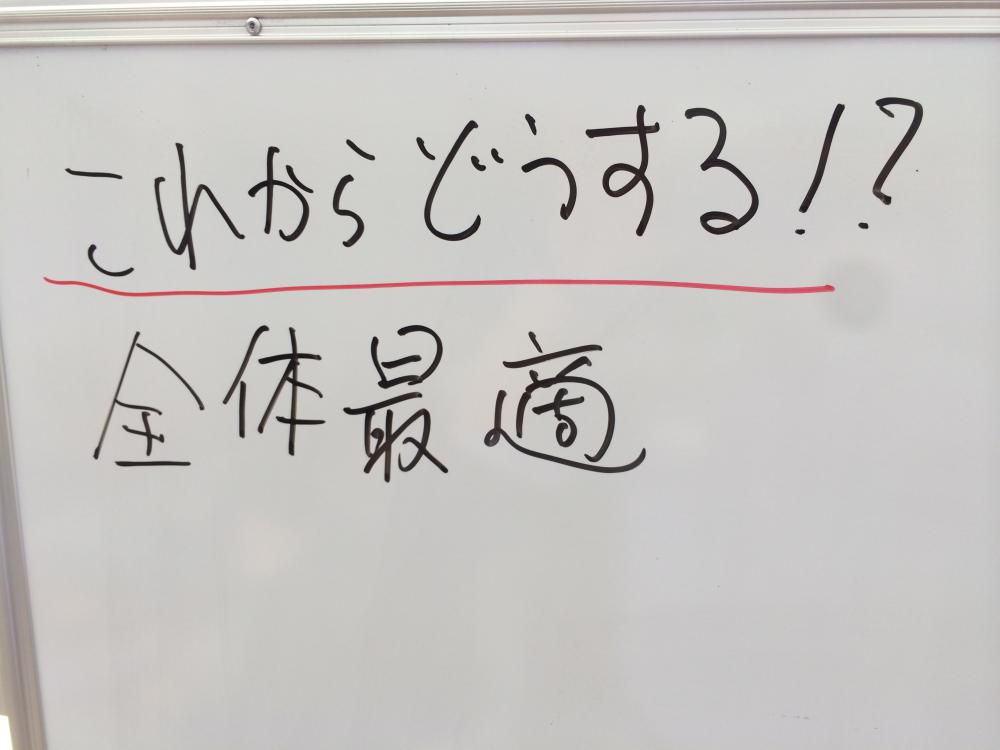 これからどうする!?
全体最適